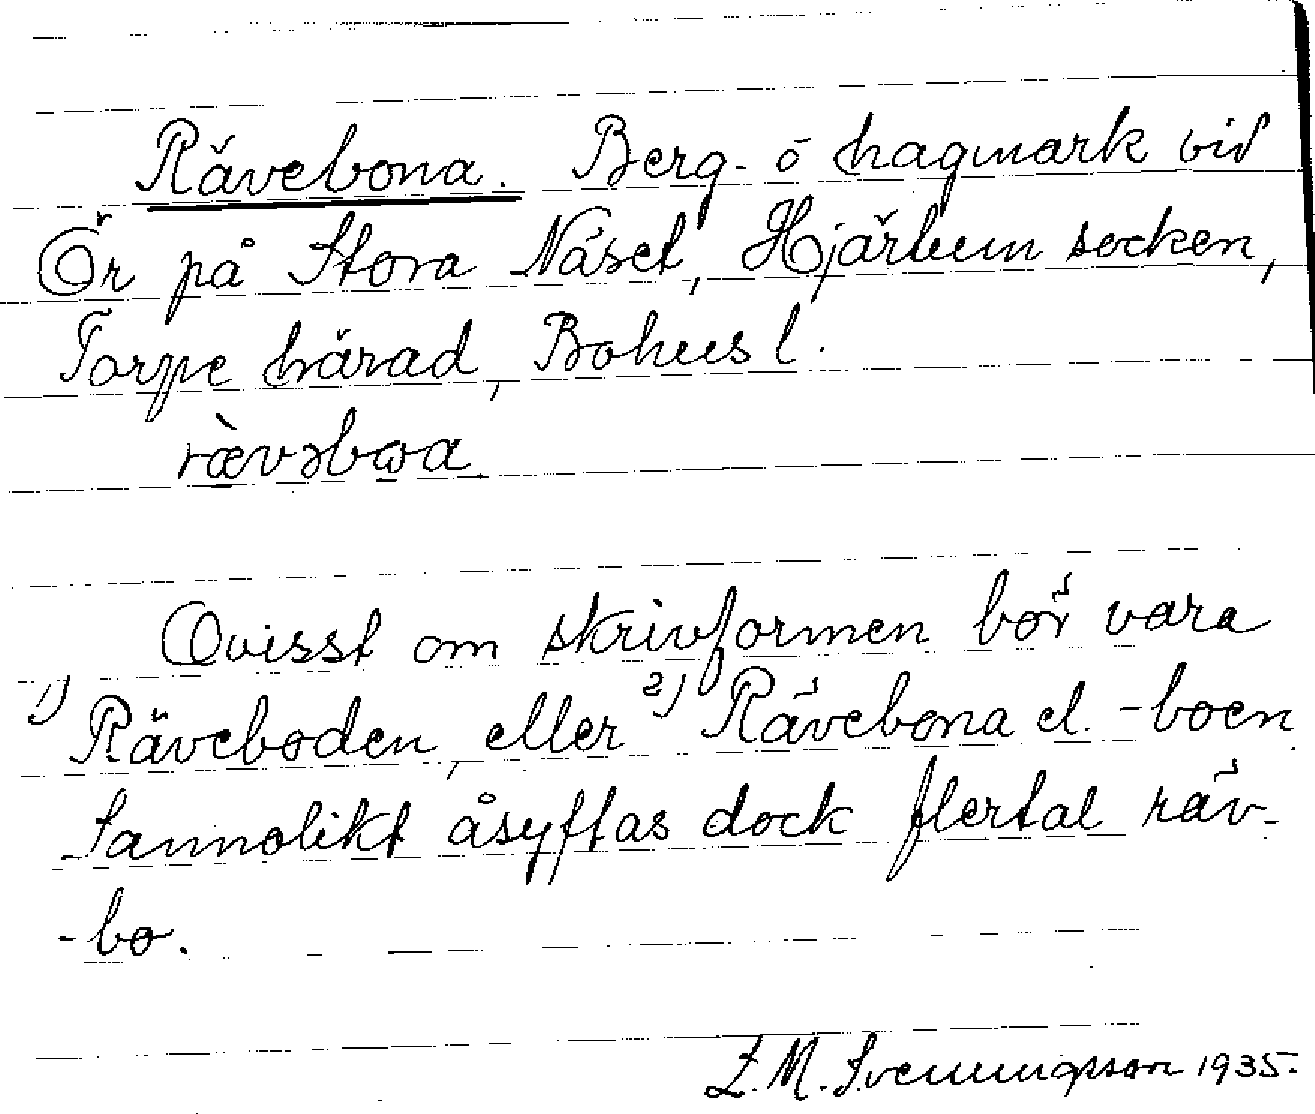 Rävebona. Berg- o hagmark vid
Ör på Stora Näset, Hjärtum socken,
Torpe härad, Bohusl.
rævəbωa
Ovisst om skrivformen bör vara
1) Räveboden, eller 2) Rävebona el. -boen
Sannolikt åsyftas dock flertal räv-
-bo.
E. M. Svenungsson 1935.